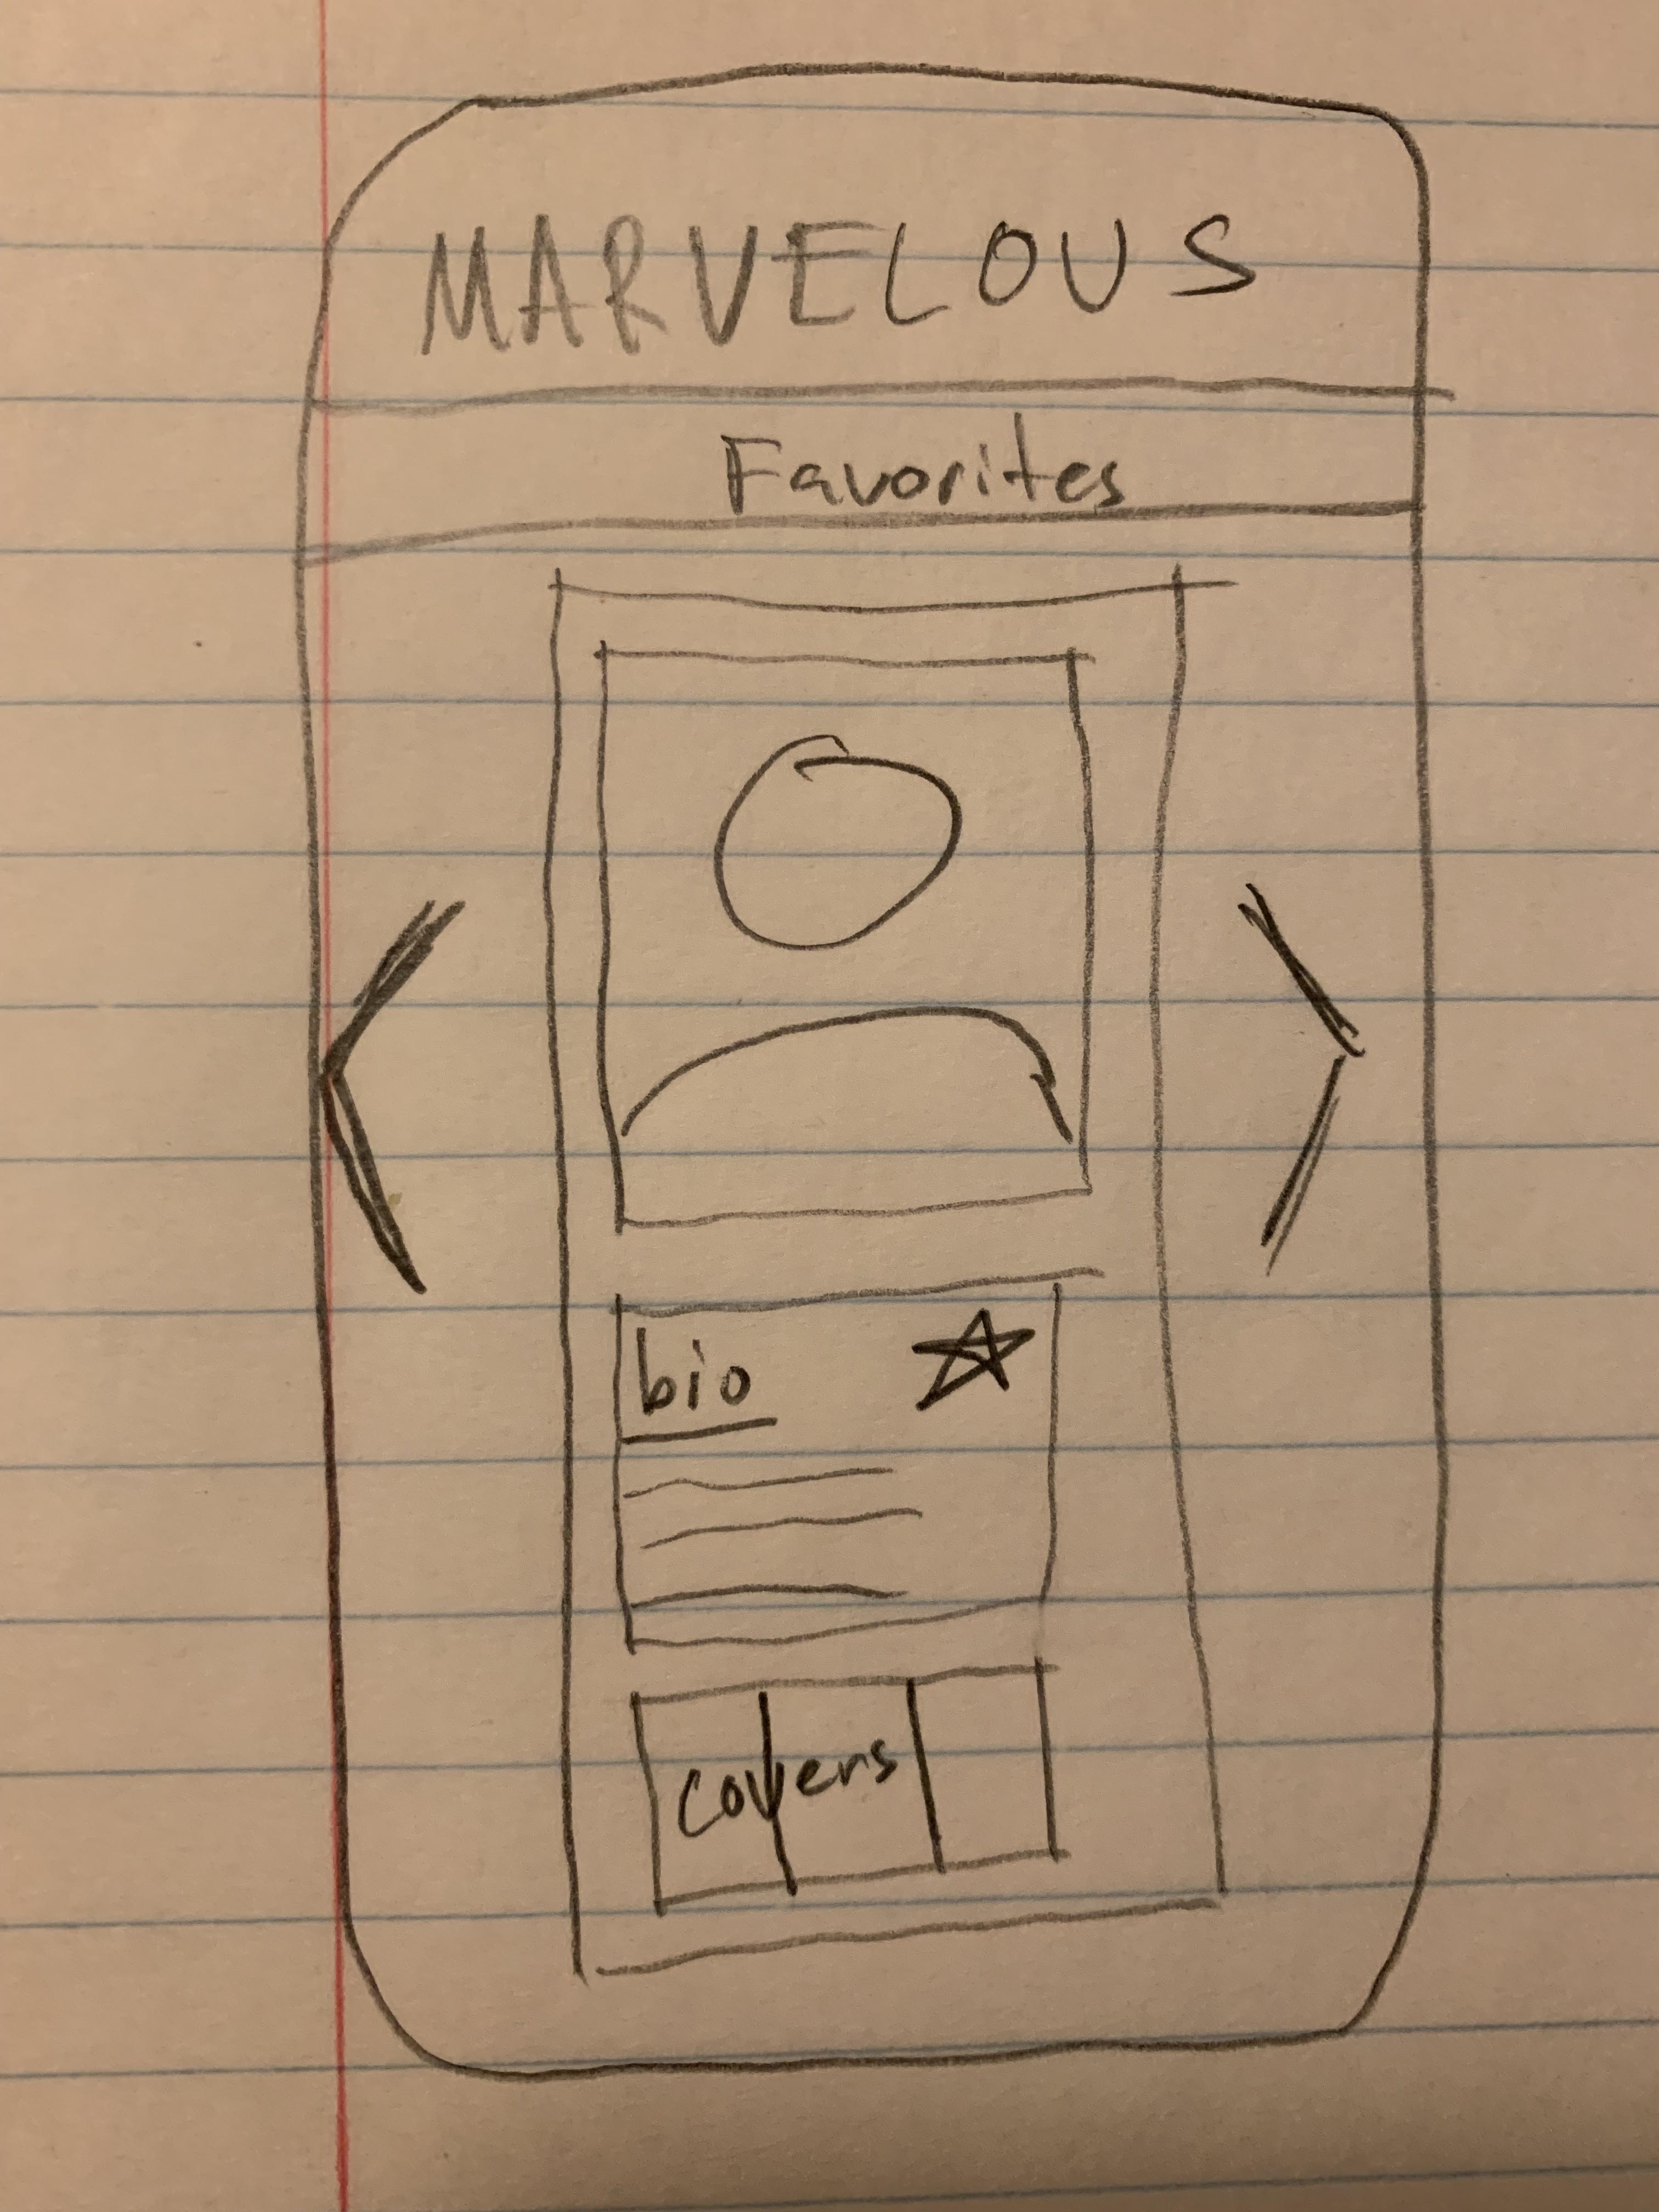 MARVELOUS
Favorites
bio
covers